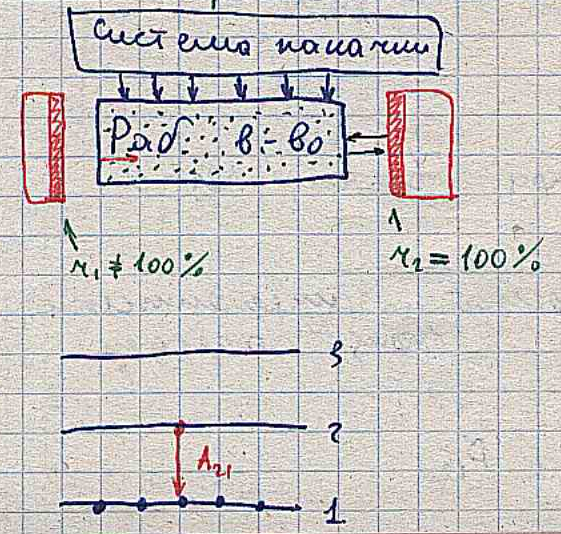 Система накачки
Раб. в-во
r₁ ≠ 100%
r₂ = 100%
3
2
A₂₁
1